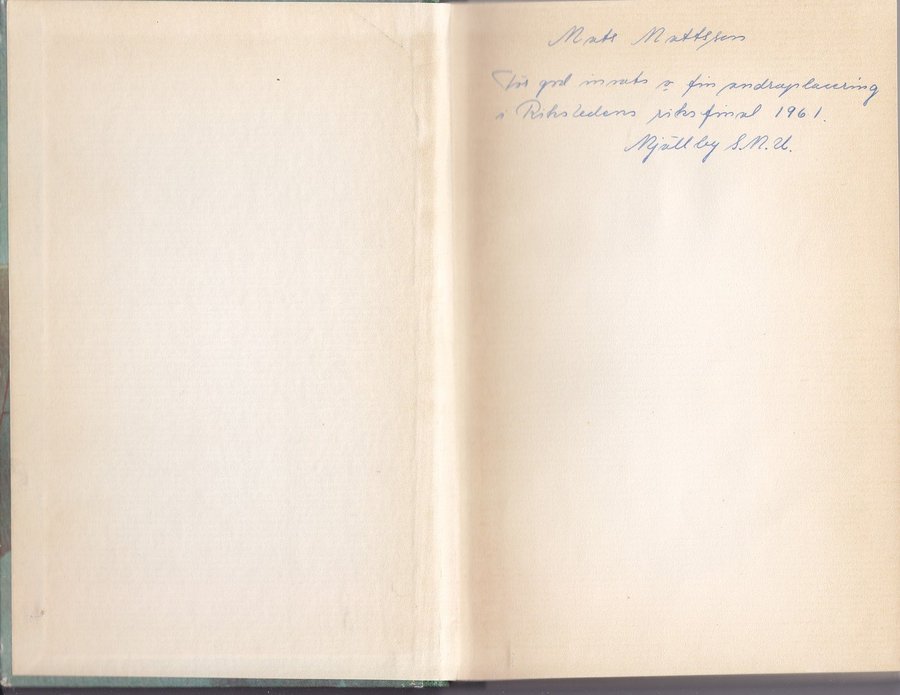 Mats Mattsson
För god insats o fin andraplacering
i Riksledens riksfinal 1961.
Mjällby S.M.U.